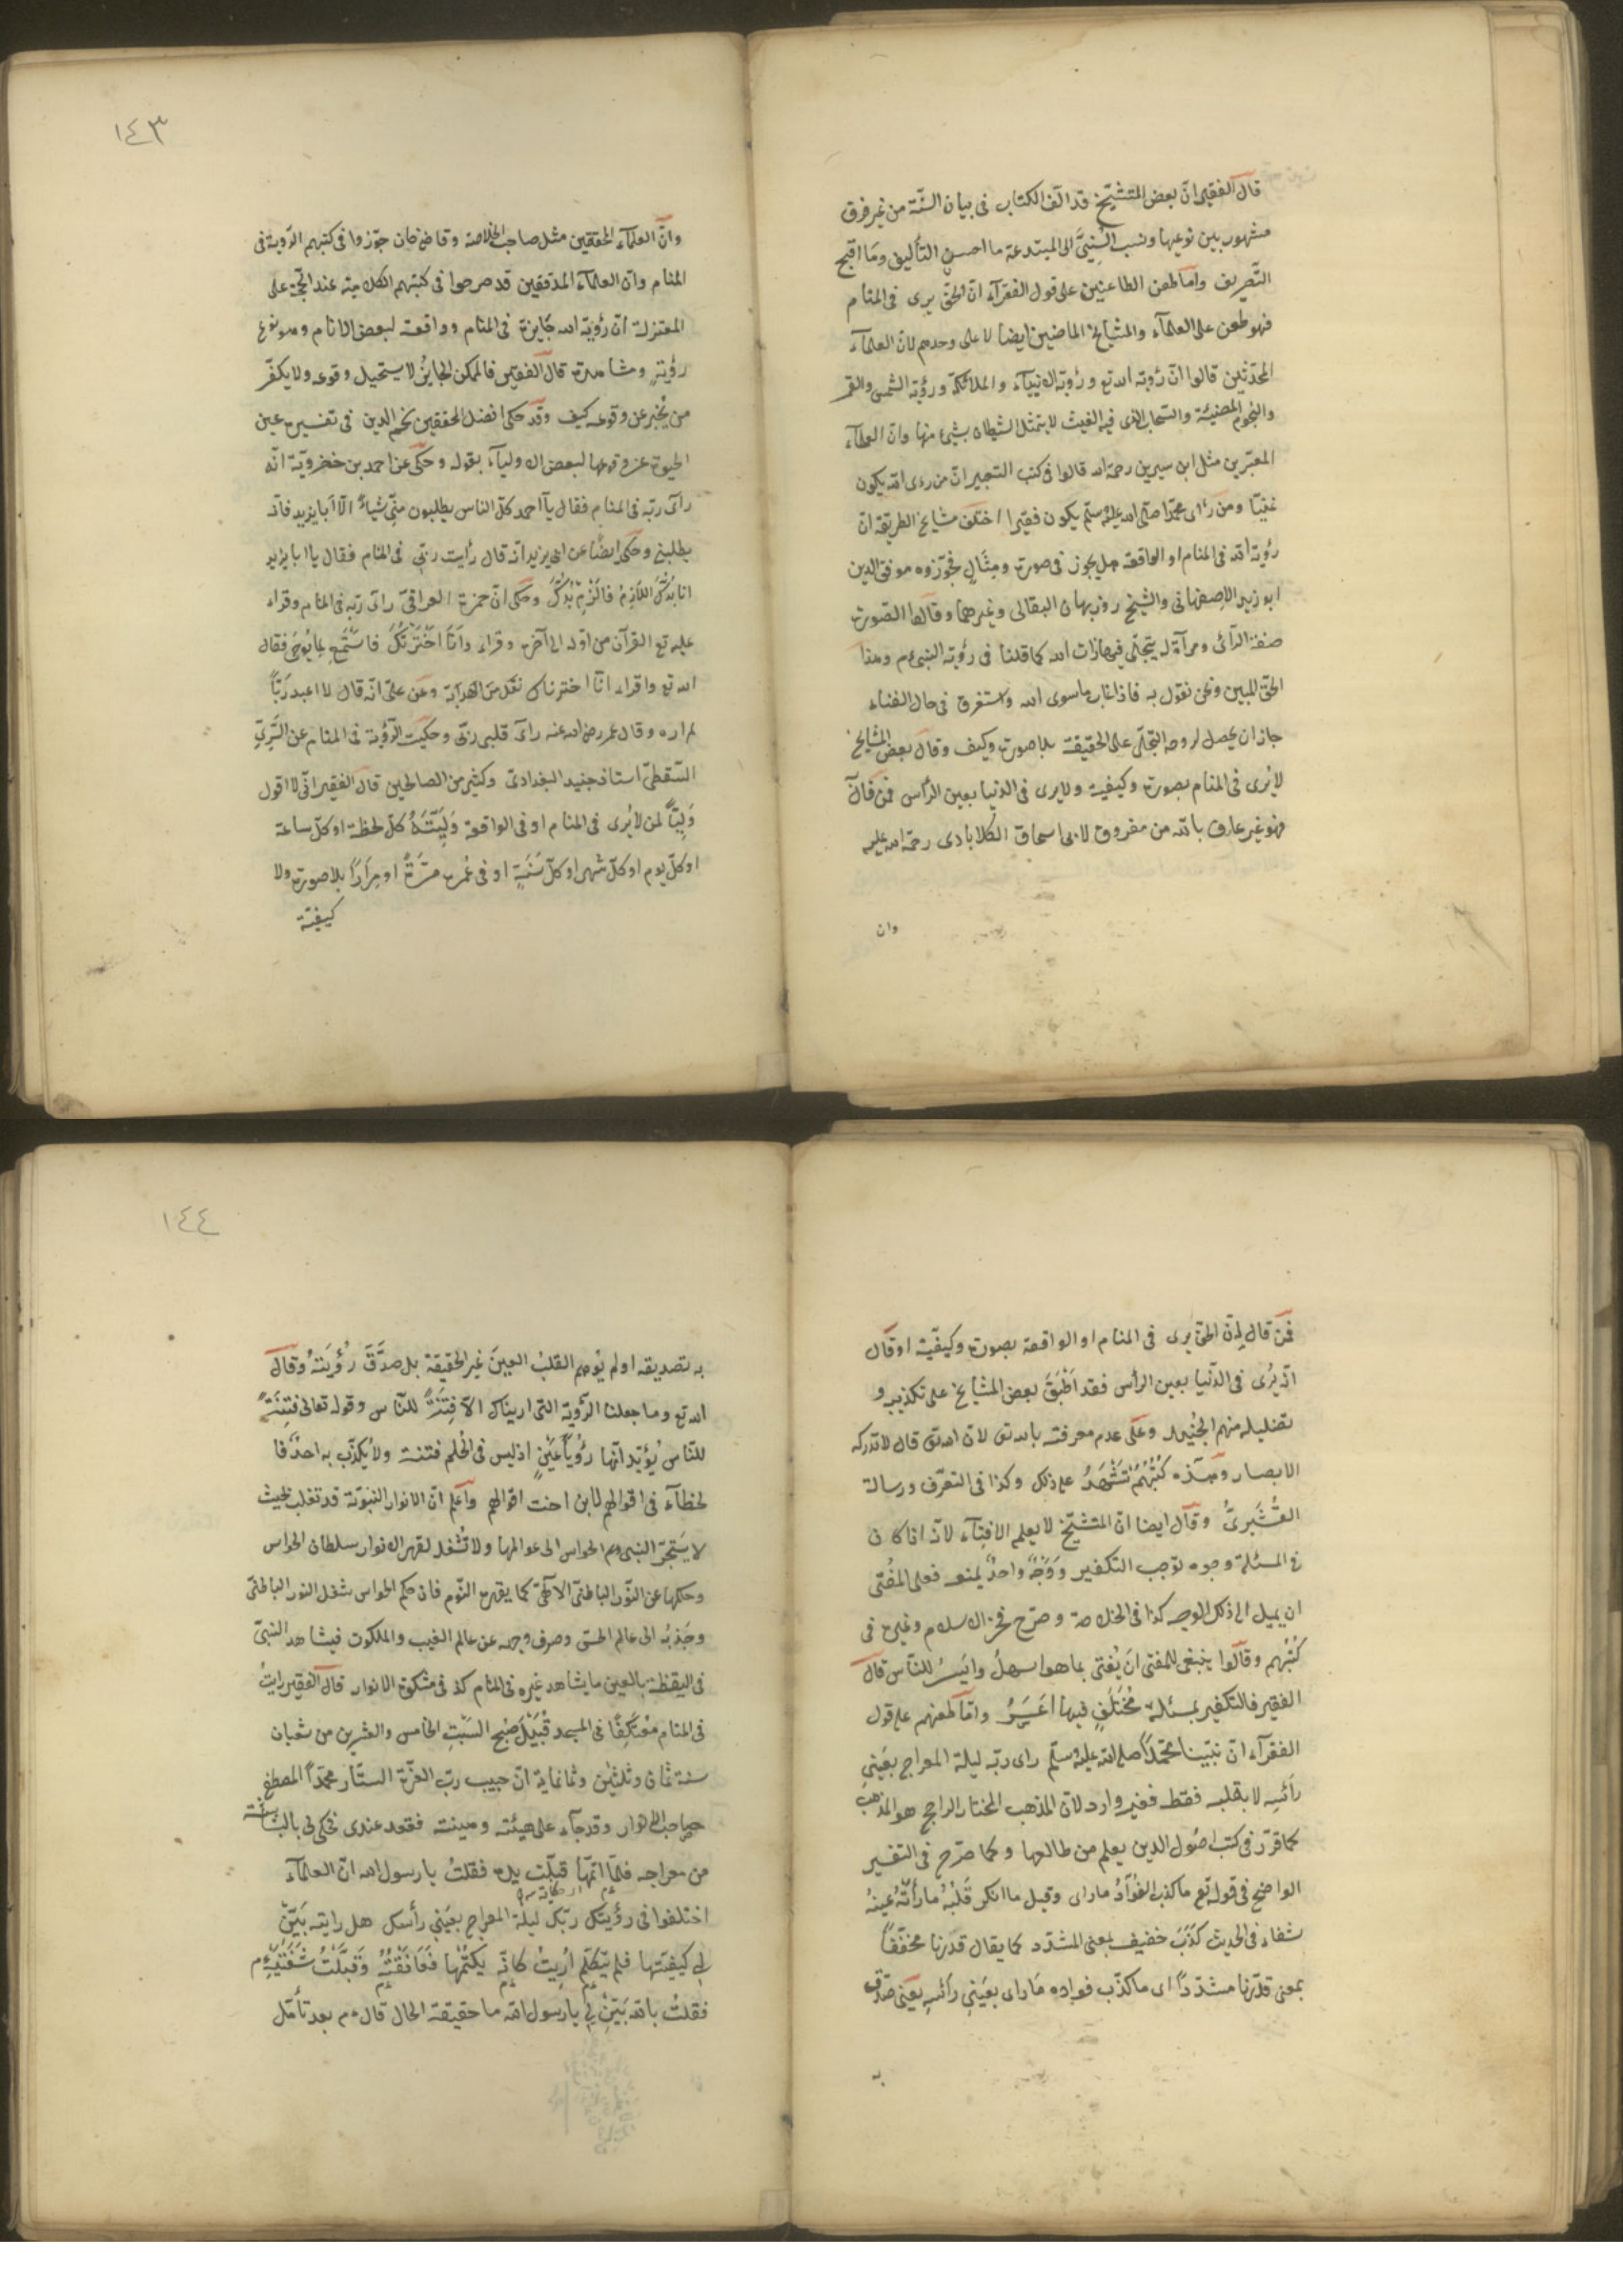 قال الفقير انّ بعض المتشيّخ قد الّف الكتاب فى بيان السنّة من غير فرق
مشهور بين نوعيها ونسب السُّنِّيَّ الى المبتدعة ما احسن التأليف وما اقبح
التّصريف وامّا طعن الطاعنين على قول الفقرآء انّ الحقّ يرى فى المنام
فهو طعن على العلمآء والمشايخ الماضين ايضا لا على وحدهم لانّ العلمآء
المحدّثين قالوا انّ رؤية الله تع ورؤية الانبيآء والملائكة ورؤية الشمس والقمر
والنجوم المضيئة والسحاب الذى فيه الغيث لا يتمثل الشيطان بشئ منها وانّ العلمآء
المعبّرين مثل ابن سيرين رحمه الله قالوا فى كتب التعبير انّ من راى الله يكون
غنيّا ومن رأى محمّدا صلى الله عليه وسلّم يكون فقيرا اختلف مشايخ الطريقة انّ
رؤية الله فى المنام او الواقعة هل يجوز فى صورة ومثال فجوّزه موفق الدين
ابو زبير الاصفهانى والشيخ روزبهان البقالى وغيرهما وقالوا الصّورة
صفة الرآئى ومرآة له يتجلّى فيها ذات الله كما قلنا فى رؤية النبىّ م وهذا
الحقّ المبين ونحن نقول به فاذا غاب ماسوى الله واستغرق فى حال الفناء
جاز ان يحصل لروحه التجلّى على الحقيقة بلا صورة وكيف وقال بعض المشايخ
لا يُرى فى المنام بصورة وكيفية ولا يرى فى الدنيا بعين الرأس فمن قال
فهو غير عارف بالله من مفروق لابى اسحاق الكلابادى رحمة الله عليه
وان
١٤٣
وانّ العلمآء المحققين مثل صاحب الخلاصة وقاضى خان جوّزوا فى كتبهم الرّوية فى
المنام وانّ العلمآء المدققين قد صرحوا فى كتبهم الكلامية عند الحجّة على
المعتزلة انّ رؤية الله جايزة فى المنام وواقعة لبعض الانام وهو نوع
رؤيةٍ ومشاهدة قال الفقير فالممكن الجايز لا يستحيل وقوعه ولا يكفّر
من يُخبر عن وقوعه كيف وقد حكى افضل المحققين نجم الدين فى تفسيره عين
الحيوة عن وقوعها لبعض الاوليآء بقوله وحكى عن احمد بن خضرويّة انّه
رآى ربّه فى المنام فقال يآ احمد كلّ الناس يطلبون منّى شياءً الّا ابا يزيد فانّه
يطلبنى وحكى ايضًا عن ابى يزيد انّه قال رأيت ربّى فى المنام فقال يا ابا يزيد
انا بُدُّكَ اللّازِمُ فَالْزِمْ بُدَّكَ وحكى انّ حمزة العراقىّ راى ربّه فى المنام وقراء
عليه تع القرآن من اوّله الى آخره وقراء وَاَنَا اخْتَرْتُكَ فَاسْتَمِعْ لِمَا يُوحَى فقال
الله تع واقراء انّا اخترناك نقل من الهداية وعن علىّ انّه قال لا اعبد ربّاً
لم اره وقال عمر رضى الله عنه رآى قلبى ربّى وحكيت الرّؤية فى المنام عن السَّرِىّ
السّقطىّ استاذ جنيد البغدادى وكثير من الصالحين قال الفقير انّى لا اقول
وَلِيّاً لمن لا يُرى فى المنام او فى الواقعة وَلِيَّتَهُ كلّ لحظة او كلّ ساعة
او كلّ يوم او كلّ شهر او كلّ سَنَةٍ او فى عُمره مَرّةً او مِرَارًا بلا صورة ولا
كيفيّة
فمن قال بانّ الحقّ يرى فى المنام او الواقعة بصورة وكيفيّة او قال
انّه يُرى فى الدّنيا بعين الرأس فقد اَطْبَقَ بعض المشايخ على تكذيبه و
تضليله منهم الجُنيد وعَلَى عدم معرفته بالله تع لانّ الله تع قال لا تدركه
الابصار وهذه كُتُبُهُمْ تَشْهَدُ على ذلك وكذا فى التعرّف ورسالة
القُشَيرىّ وقال ايضا انّ المتشيّخ لا يعلم الافتآء لانّه اذا كان
فى المسئلة وجوه توجب التكفير وَوَجْهٌ واحدٌ يمنعه فعلى المفتى
ان يميل الى ذلك الوجه كذا فى الخلاصة وصرّح فخر الاسلام وغيره فى
كُتُبهم وقالوا ينبغى للمفتى ان يُفتى بما هو اسهلُ وايسرُ للنّاس قال
الفقير فالتكفير بمسئلة مُخْتَلَفٍ فيها اَعْسَرُ وامّا طعنهم على قول
الفقرآء انّ نبيّنا محمّداً صلى الله عليه وسلّم راى ربّه ليلة المعراج بعَينى
رَأسِه لا بقلبه فقط فغير وارد لانّ المذهب المختار الراجح هو المذهب
كما قرّر فى كتب اصول الدين يعلم من طالعها وكما صرّح فى التفسير
الواضح فى قوله تع ما كذب الفُؤادُ ما راى وقيل ما انكر قَلْبُهُ ما رأته عينه
شفاء فى الحديث كَذَبَ خفيف بمعنى المشدّد كما يقال قدَرنا مخفّفًا
بمعنى قدّرنا مشدّدًا اى ما كذّب فواده ما راى بعَينى رأسِه يعنى صدّق
به
١٤٤
به تصديقه او لم يُوهِم القلبُ العينَ غيرَ الحقيقة بل صدَّقَ رُؤْيَتَهُ وقال
الله تع وما جعلنا الرّؤية التى اريناك الّا فِتنةً للنّاس وقوله تعالى فتنةً
للنّاس يُؤيّد انّها رؤيآ عَيْنٍ اذ ليس فى الحُلم فتنة ولا يُكذّب به احدٌ فا
لخطآء فى اقوالهم لا بن احنت اقوالهم وآعلم انّ الانوار النبويّة قد تغلب بحيث
لا يَستَجرّ النبى م الحواس الى عوالمها ولا تُشغل لقهر الانوار سلطان الحواس
وحكمها عن النّور الباطنىّ الالهىّ كما يقهره النّوم فان حكم الحواس شغل النور الباطنىّ
وجَذبُهُ الى عالم الحسّ وصرف وجهه عن عالم الغيب والملكوت فيشاهد النبىّ
فى اليقظة بالعين ما يشاهد غيره فى المنام كذ فى مشكوة الانوار قال الفقير رايتُ
فى المنام مُعْتَكِفًا فى المسجد قُبَيْلَ صُبح السَّبْتِ الخامس والعشرين من شعبان
سنة ثمان وثلثين وثمانماية انّ حبيب ربّ العزّة الستّار محمّداً المصطفى
صاحب الانوار وقد جآء على هيئته وهينته فقعد عندى فحكى لى بالبشاشة
من معراجه فلمّا اتمّها قبّلت يده فقلتُ يا رسول الله انّ العلمآء
اختلفوا فى رؤيتك ربّك ليلة المعراج بعَينى رأسك هل رايته بَيّن
لى كيفيّتها فلم يتكلّم اُرِيتُ كانّه يكتمها فَعَانَقْتُهُ وَقَبَّلْتُ شَفَتَيْهِ م
فقلتُ بالله بَيّن لى يا رسول الله ما حقيقة الحال قال م بعد تأمّل